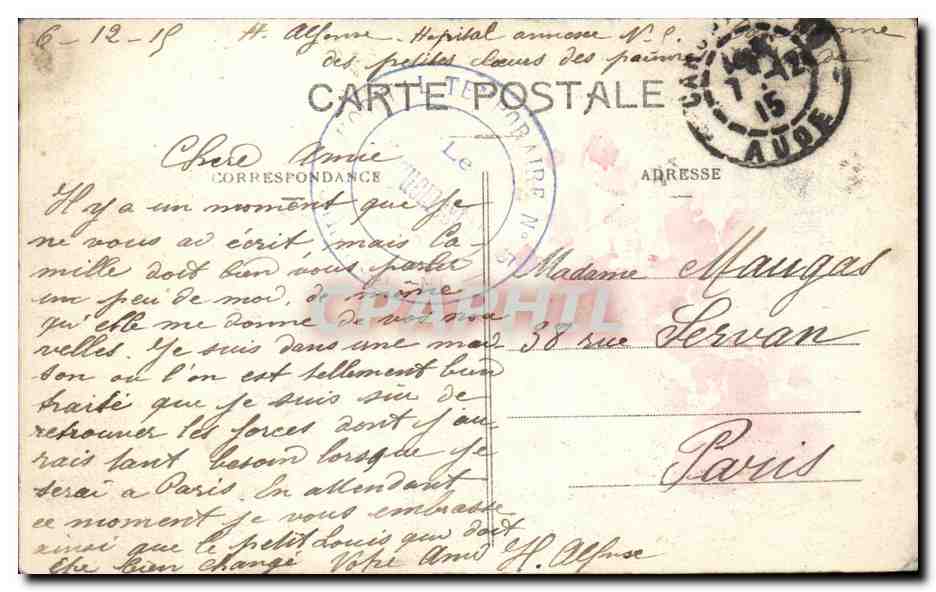 6-12-15 H. Alfonse. Hopital annexe N. 5
des petites Soeurs des pauvres
CARTE POSTALE
TEMPORAIRE No
Le
AUDE
7-12
15
Chere Amie
CORRESPONDANCE
ADRESSE
Il y a un moment que je
ne vous ai écrit, mais Ca-
mille doit bien vous parler
un peu de moi, de même
qu'elle me donne de vos nou
velles. Je suis dans une mai
son ou l'on est tellement bien
traité que je suis sûr de
retrouver les forces dont j'au-
rais tant besoin lorsque je
serai a Paris. En attendant
ce moment je vous embrasse
ainsi que le petit Louis qui doit
être bien changé Votre Ami H. Alfonse
Madame Maugas
38 rue Servan
Paris
CPAPHIL